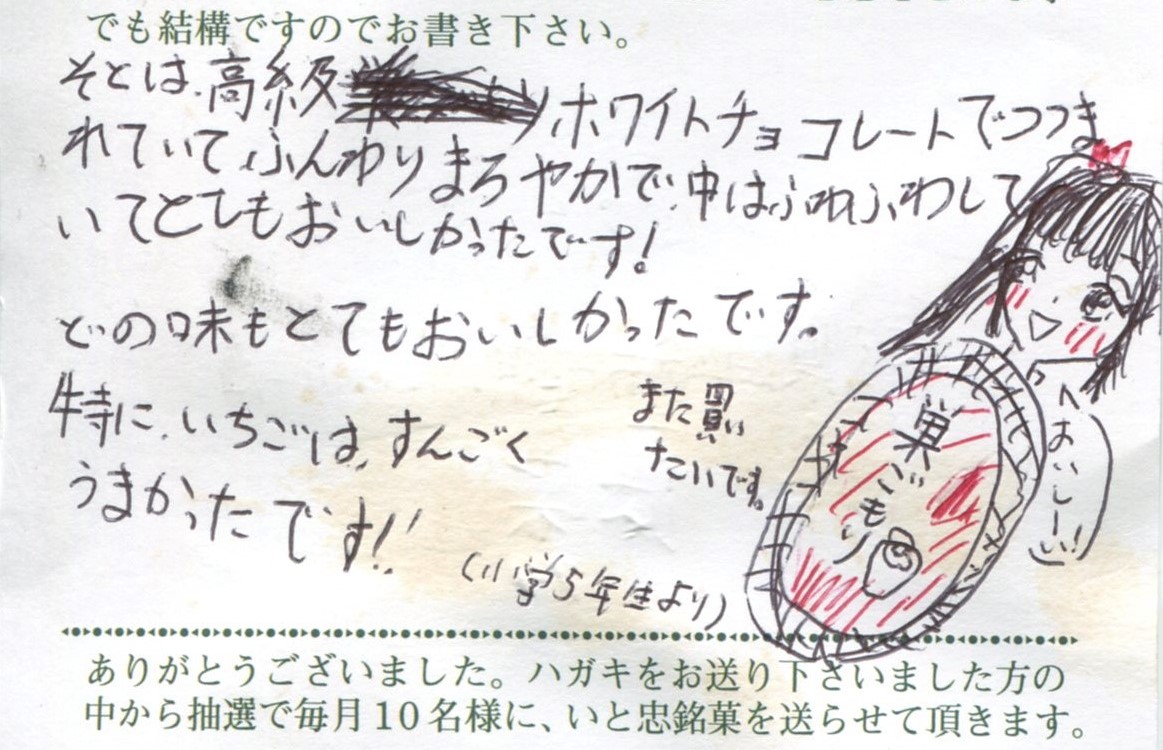 でも結構ですのでお書き下さい。
そとは、高級ホワイトチョコレートでつつま
れていてふんわりまろやかで、中はふわふわして
いてとてもおいしかったです!
どの味もとてもおいしかったです。
特に、いちごは、すんごく
うまかったです!!
また買い
たいです。
(小学5年生より)
おいしーい!
巣ごもり
ありがとうございました。ハガキをお送り下さいました方の
中から抽選で毎月10名様に、いと忠銘菓を送らせて頂きます。